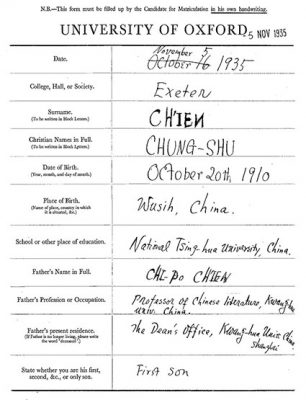 N.B.—This form must be filled up by the Candidate for Matriculation in his own handwriting.
UNIVERSITY OF OXFORD
5 NOV 1935
Date.
November 5
October 16 1935
College, Hall, or Society.
Exeter
Surname.
(To be written in Block Letters.)
CH'IEN
Christian Names in Full.
(To be written in Block Letters.)
CHUNG-SHU
Date of Birth.
(Year, month, and day of month.)
October 20th, 1910
Place of Birth.
(Name of place, country in which
it is situated, &c.)
Wusih, China.
School or other place of education.
National Tsing-hua University, China.
Father's Name in Full.
CHI-PO CH'IEN
Father's Profession or Occupation.
Professor of Chinese Literature, Kwang-hua
Univ. China.
Father's present residence.
(If Father is no longer living, please write
the word "deceased".)
The Dean's Office, Kwang-hua Univ. China
Shanghai
State whether you are his first,
second, &c., or only son.
First son